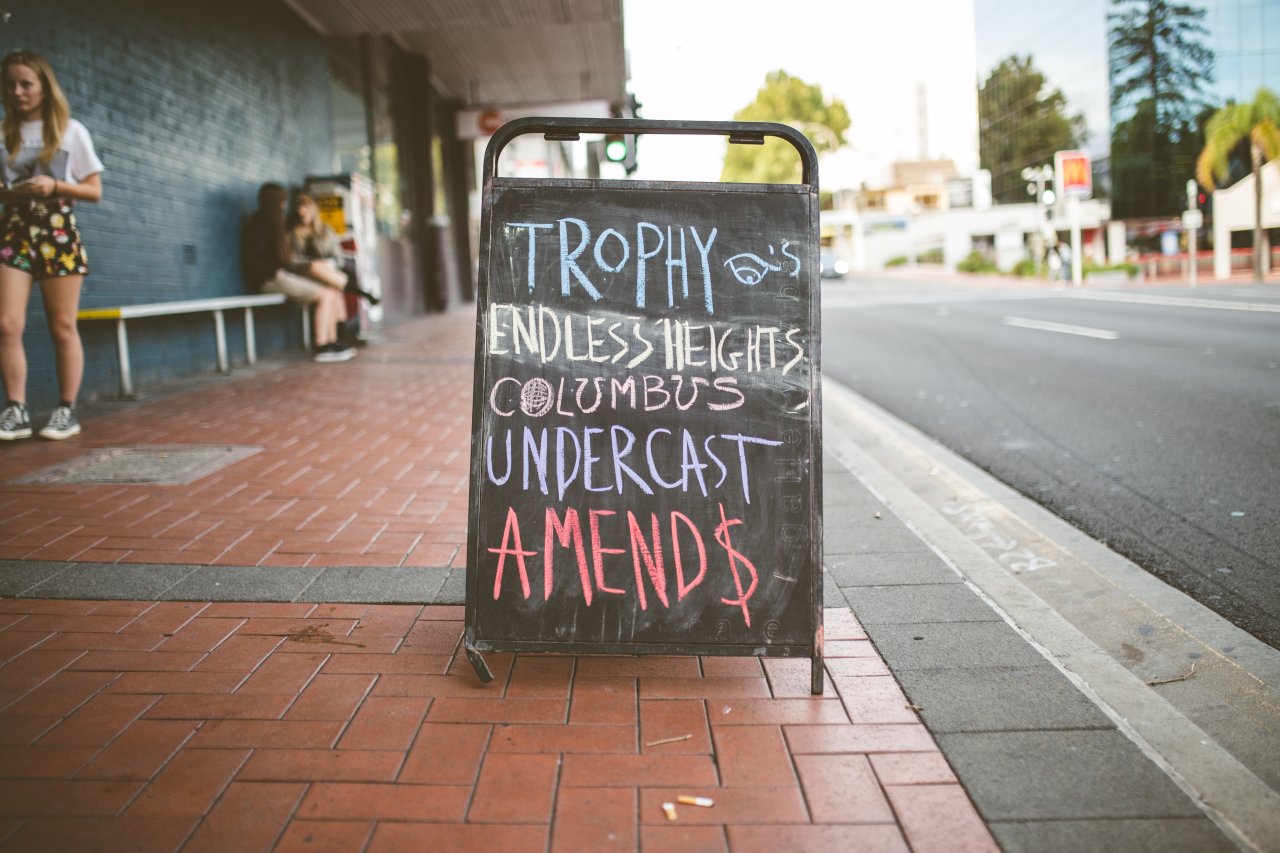 TROPHY 's
ENDLESS HEIGHTS
COLUMBUS
UNDERCAST
AMEND$